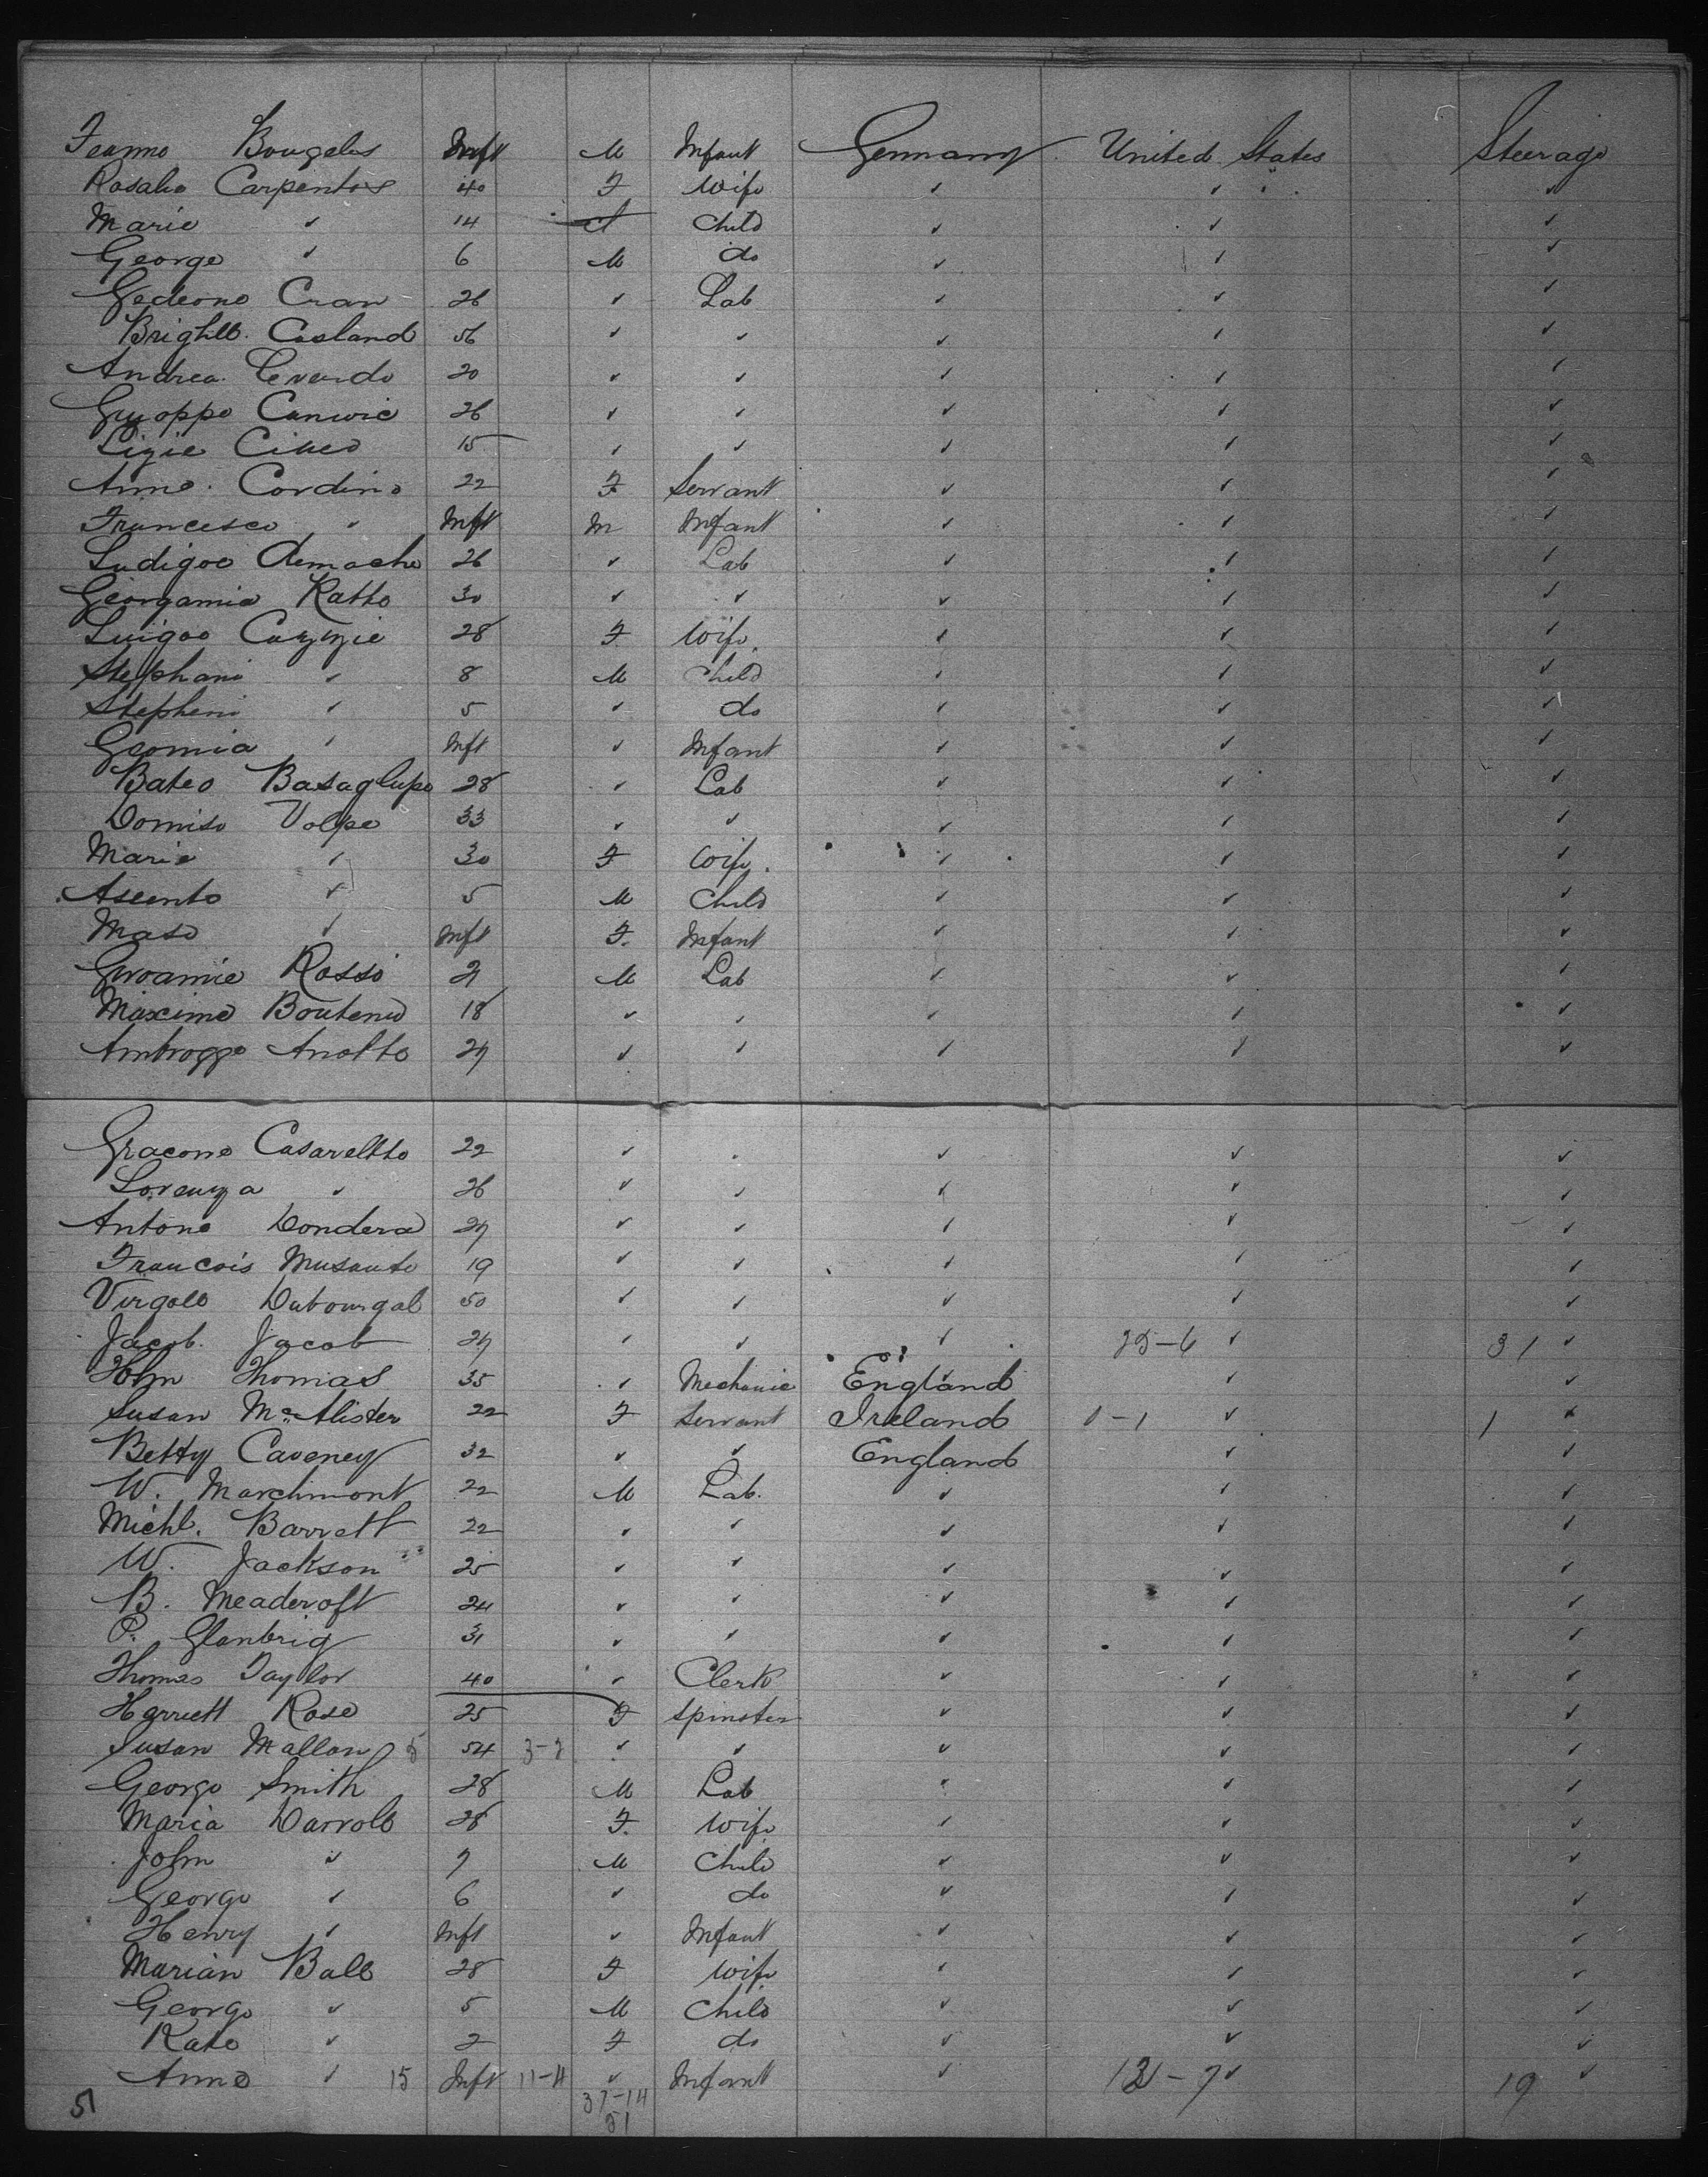 Feanno Bougelus Inft M Infant Germany United States Steerage
Rosalie Carpentos 40 F Wife ✓ ✓ ✓
Marie ✓ 14 Child ✓ ✓ ✓
George ✓ 6 M do ✓ ✓ ✓
Gedeono Cran 26 ✓ Lab ✓ ✓ ✓
Casland 56 ✓ ✓ ✓ ✓ ✓
Andrea 20 ✓ ✓ ✓ ✓ ✓
Canwic 26 ✓ ✓ ✓ ✓ ✓
Ligie 15 ✓ ✓ ✓ ✓ ✓
Anne Cordino 22 F Servant ✓ ✓ ✓
Francesco ✓ Inft M Infant ✓ ✓ ✓
Ludigoo 26 ✓ Lab ✓ ✓ ✓
Georgamia Ratto 30 ✓ ✓ ✓ ✓ ✓
Luigoo Cazzie 28 F Wife ✓ ✓ ✓
Stephani ✓ 8 M Child ✓ ✓ ✓
Stepheni ✓ 5 ✓ do ✓ ✓ ✓
Geomia ✓ Inft ✓ Infant ✓ ✓ ✓
Bateo Basaglupo 28 ✓ Lab ✓ ✓ ✓
Domiso Volpe 33 ✓ ✓ ✓ ✓ ✓
Marie ✓ 30 F Wife ✓ ✓ ✓
Ascento ✓ 5 M Child ✓ ✓ ✓
Maso ✓ Inft F. Infant ✓ ✓ ✓
Rosso M Lab ✓ ✓ ✓
Maximo Boutenio 18 ✓ ✓ ✓ ✓ ✓
Ambroggo Anolto 27 ✓ ✓ ✓ ✓ ✓
Gracomo Casareltto 22 ✓ ✓ ✓ ✓ ✓
Lorenza ✓ 26 ✓ ✓ ✓ ✓ ✓
Antono Dondera 27 ✓ ✓ ✓ ✓ ✓
Francois Musanto 19 ✓ ✓ ✓ ✓ ✓
Virgoll Dubourgal 50 ✓ ✓ ✓ ✓ ✓
Jacob. Jacob 27 ✓ ✓ ✓ 25-6 ✓ 31 ✓
John Thomas 35 ✓ Mechanic England ✓ ✓
Susan McAlister 22 F Servant Ireland 0-1 ✓ 1 ✓
Betty Caveney 32 ✓ ✓ England ✓ ✓
W. Marchmont 22 M Lab. ✓ ✓ ✓
Michl. Barrett 22 ✓ ✓ ✓ ✓ ✓
W. Jackson 25 ✓ ✓ ✓ ✓ ✓
B. Meadcroft 24 ✓ ✓ ✓ ✓ ✓
P. Glanbrig 31 ✓ ✓ ✓ ✓ ✓
Thomas Taylor 40 ✓ Clerk ✓ ✓ ✓
Harriett Rose 25 F Spinster ✓ ✓ ✓
Susan Mallan 5 54 3-2 ✓ ✓ ✓ ✓ ✓
George Smith 28 M Lab ✓ ✓ ✓
Maria Darroll 28 F. Wife ✓ ✓ ✓
John ✓ 7 M Child ✓ ✓ ✓
George ✓ 6 ✓ do ✓ ✓ ✓
Henry ✓ Inft ✓ Infant ✓ ✓ ✓
Marian Ball 28 F Wife ✓ ✓ ✓
George ✓ 5 M Child ✓ ✓ ✓
Kate ✓ 2 F do ✓ ✓ ✓
Anne ✓ 15 Inft 11-4 ✓ Infant ✓ 12-7 ✓ 19 ✓
51 37-14
51